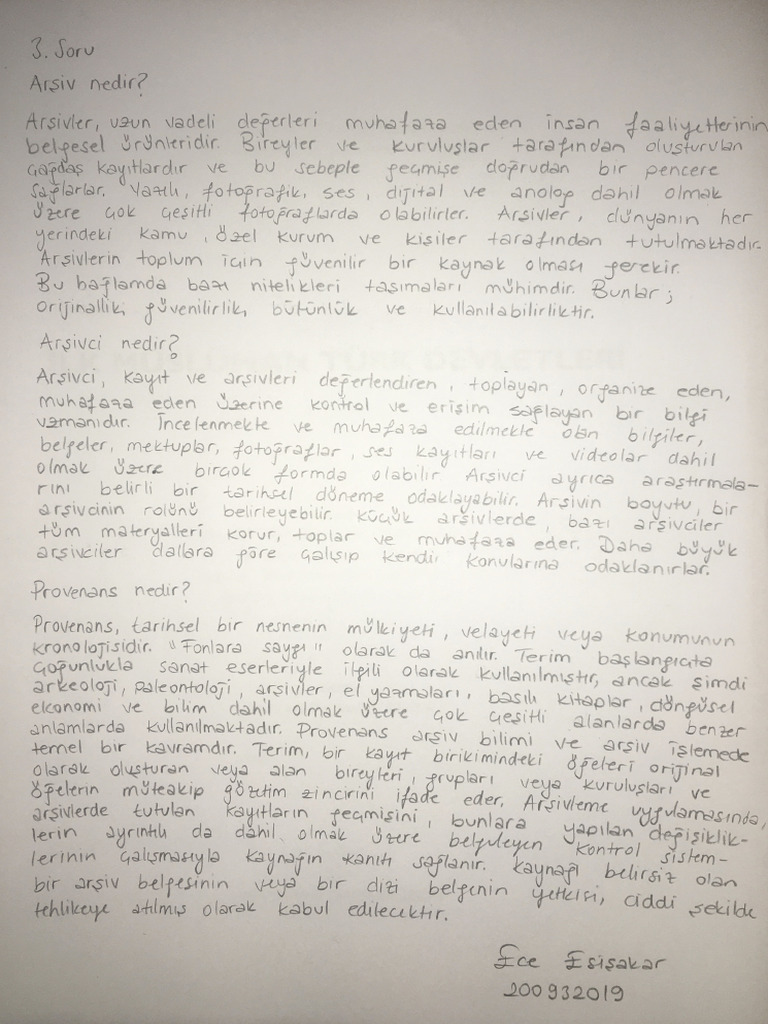 3. Soru
Arşiv nedir?
Arşivler, uzun vadeli değerleri muhafaza eden insan faaliyetlerinin
belgesel ürünleridir. Bireyler ve kuruluşlar tarafından oluşturulan
çağdaş kayıtlardır ve bu sebeple geçmişe doğrudan bir pencere
sağlarlar. Yazılı, fotoğrafik, ses, dijital ve anolog dahil olmak
üzere çok çeşitli fotoğraflarda olabilirler. Arşivler, dünyanın her
yerindeki kamu, özel kurum ve kişiler tarafından tutulmaktadır.
Arşivlerin toplum için güvenilir bir kaynak olması gerekir.
Bu bağlamda bazı nitelikleri taşımaları mühimdir. Bunlar;
orijinallik, güvenilirlik, bütünlük ve kullanılabilirliktir.
Arşivci nedir?
Arşivci, kayıt ve arşivleri değerlendiren, toplayan, organize eden,
muhafaza eden üzerine kontrol ve erişim sağlayan bir bilgi
uzmanıdır. İncelenmekte ve muhafaza edilmekte olan bilgiler,
belgeler, mektuplar, fotoğraflar, ses kayıtları ve videolar dahil
olmak üzere birçok formda olabilir. Arşivci ayrıca araştırmala-
rını belirli bir tarihsel döneme odaklayabilir. Arşivin boyutu, bir
arşivcinin rolünü belirleyebilir. Küçük arşivlerde, bazı arşivciler
tüm materyalleri korur, toplar ve muhafaza eder. Daha büyük
arşivciler dallara göre çalışıp kendir konularına odaklanırlar.
Provenans nedir?
Provenans, tarihsel bir nesnenin mülkiyeti, velayeti veya konumunun
kronolojisidir. "Fonlara saygı" olarak da anılır. Terim başlangıçta
çoğunlukla sanat eserleriyle ilgili olarak kullanılmıştır, ancak şimdi
arkeoloji, paleontoloji, arşivler, el yazmaları, basılı kitaplar, döngüsel
ekonomi ve bilim dahil olmak üzere çok çeşitli alanlarda benzer
anlamlarda kullanılmaktadır. Provenans arşiv bilimi ve arşiv işlemede
temel bir kavramdır. Terim, bir kayıt birikimindeki öğeleri orijinal
olarak oluşturan veya alan bireyleri, grupları veya kuruluşları ve
öğelerin müteakip gözetim zincirini ifade eder. Arşivleme uygulamasında,
arşivlerde tutulan kayıtların geçmişini, bunlara yapılan değişiklik-
lerin ayrıntılı da dahil olmak üzere belgeleyen kontrol sistem-
lerinin çalışmasıyla kaynağın kanıtı sağlanır. Kaynağı belirsiz olan
bir arşiv belgesinin veya bir dizi belgenin yetkisi, ciddi şekilde
tehlikeye atılmış olarak kabul edilecektir.
Ece Eşişakar
200932019